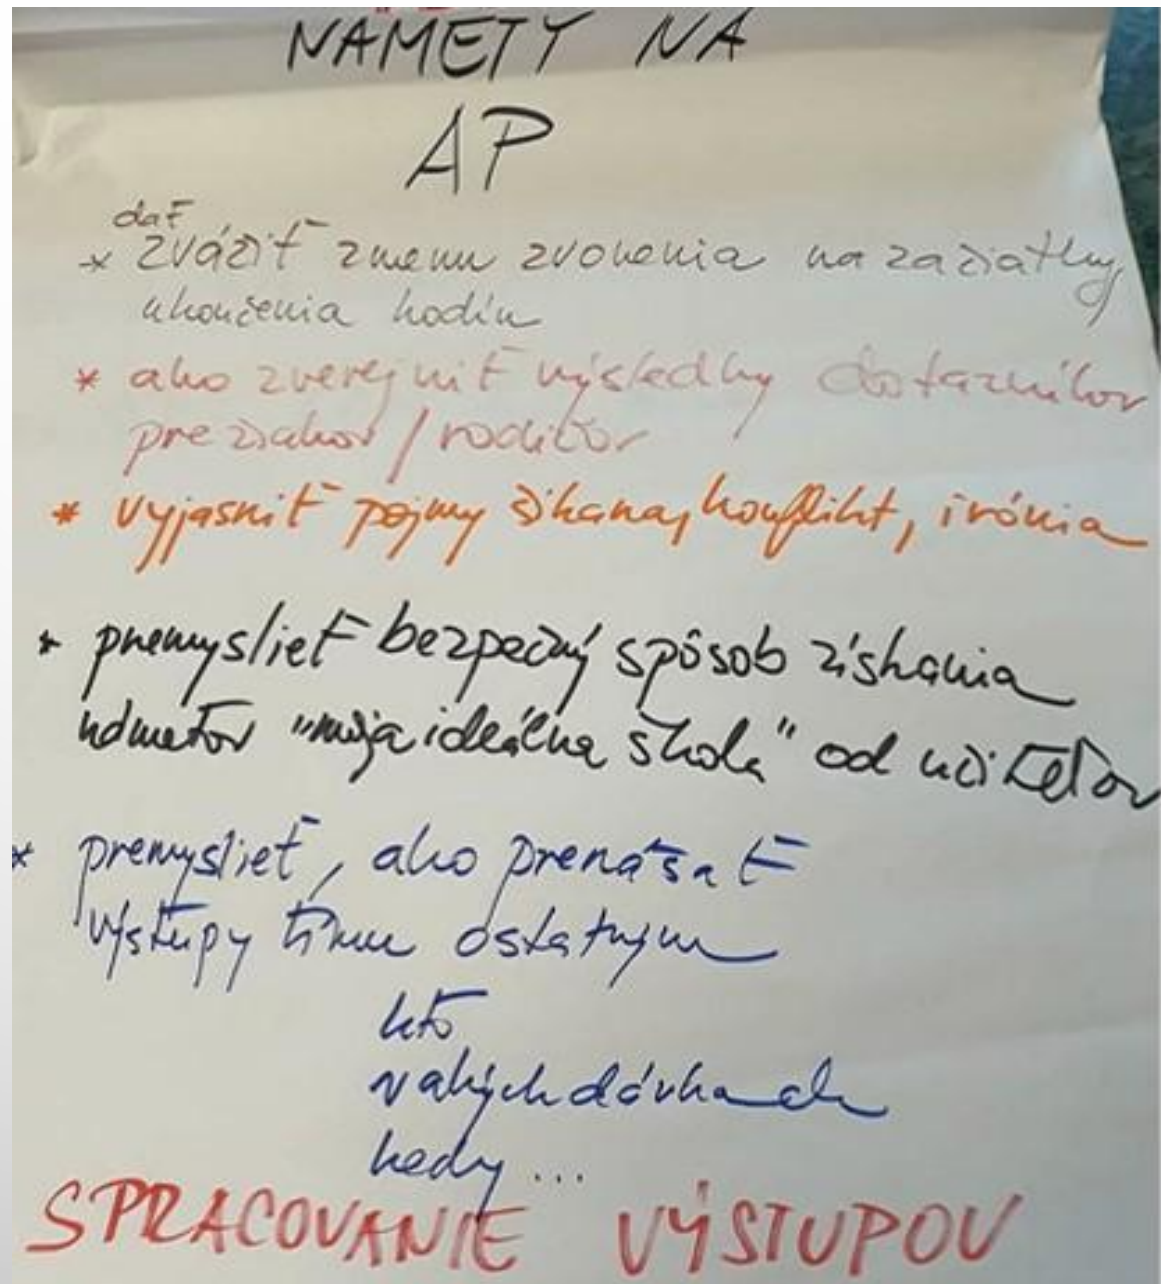 NÁMETY NA
AP
dať
* zvážiť zmenu zvonenia na začiatky,
ukončenia hodín
* ako zverejniť výsledky dotazníkov
pre žiakov / rodičov
* vyjasniť pojmy šikana, konflikt, irónia
* premyslieť bezpečný spôsob získania
námetov "moja ideálna škola" od učiteľov
* premyslieť, ako prenášať
výstupy tímu ostatným
kto
v akých dávkach
kedy...
SPRACOVANIE VÝSTUPOV